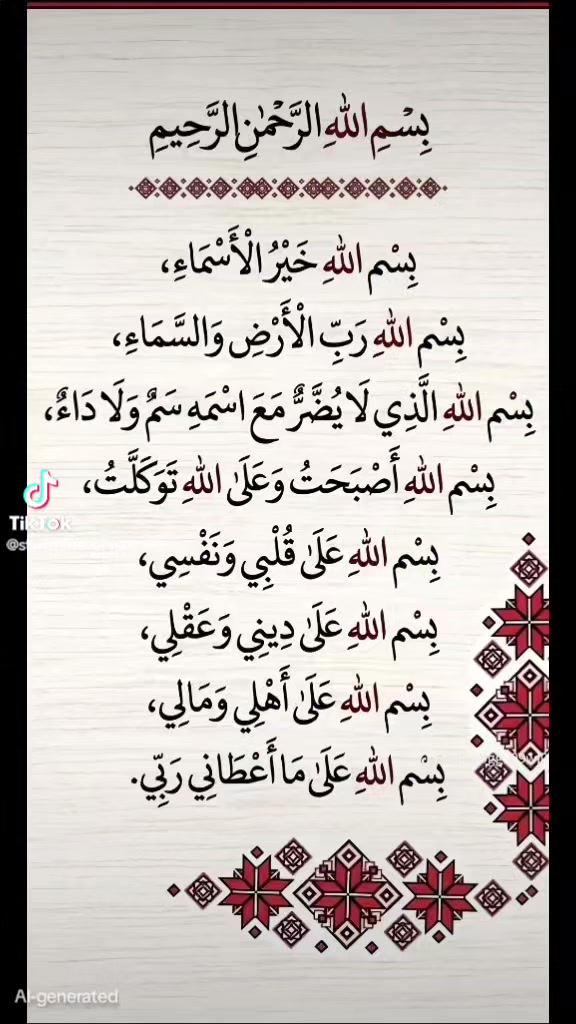 بِسْمِ اللهِ الرَّحْمٰنِ الرَّحِيمِ
بِسْم اللهِ خَيْرُ الْأَسْمَاءِ،
بِسْم اللهِ رَبِّ الْأَرْضِ وَالسَّمَاءِ،
بِسْم اللهِ الَّذِي لَا يُضَّرٌّ مَعَ اسْمَهِ سَمٌ وَلَا دَاءٌ،
بِسْم اللهِ أَصْبَحَتُ وَعَلَىٰ اللهِ تَوَكَلَّتُ،
بِسْم اللهِ عَلَىٰ قُلْبِي وَنَفْسِي،
بِسْم اللهِ عَلَىٰ دِينِي وَعَقْلِي،
بِسْم اللهِ عَلَىٰ أَهْلِي وَمَالِي،
بِسْم اللهِ عَلَىٰ مَا أَعْطَانِي رَبِّي.
TikTok
AI-generated